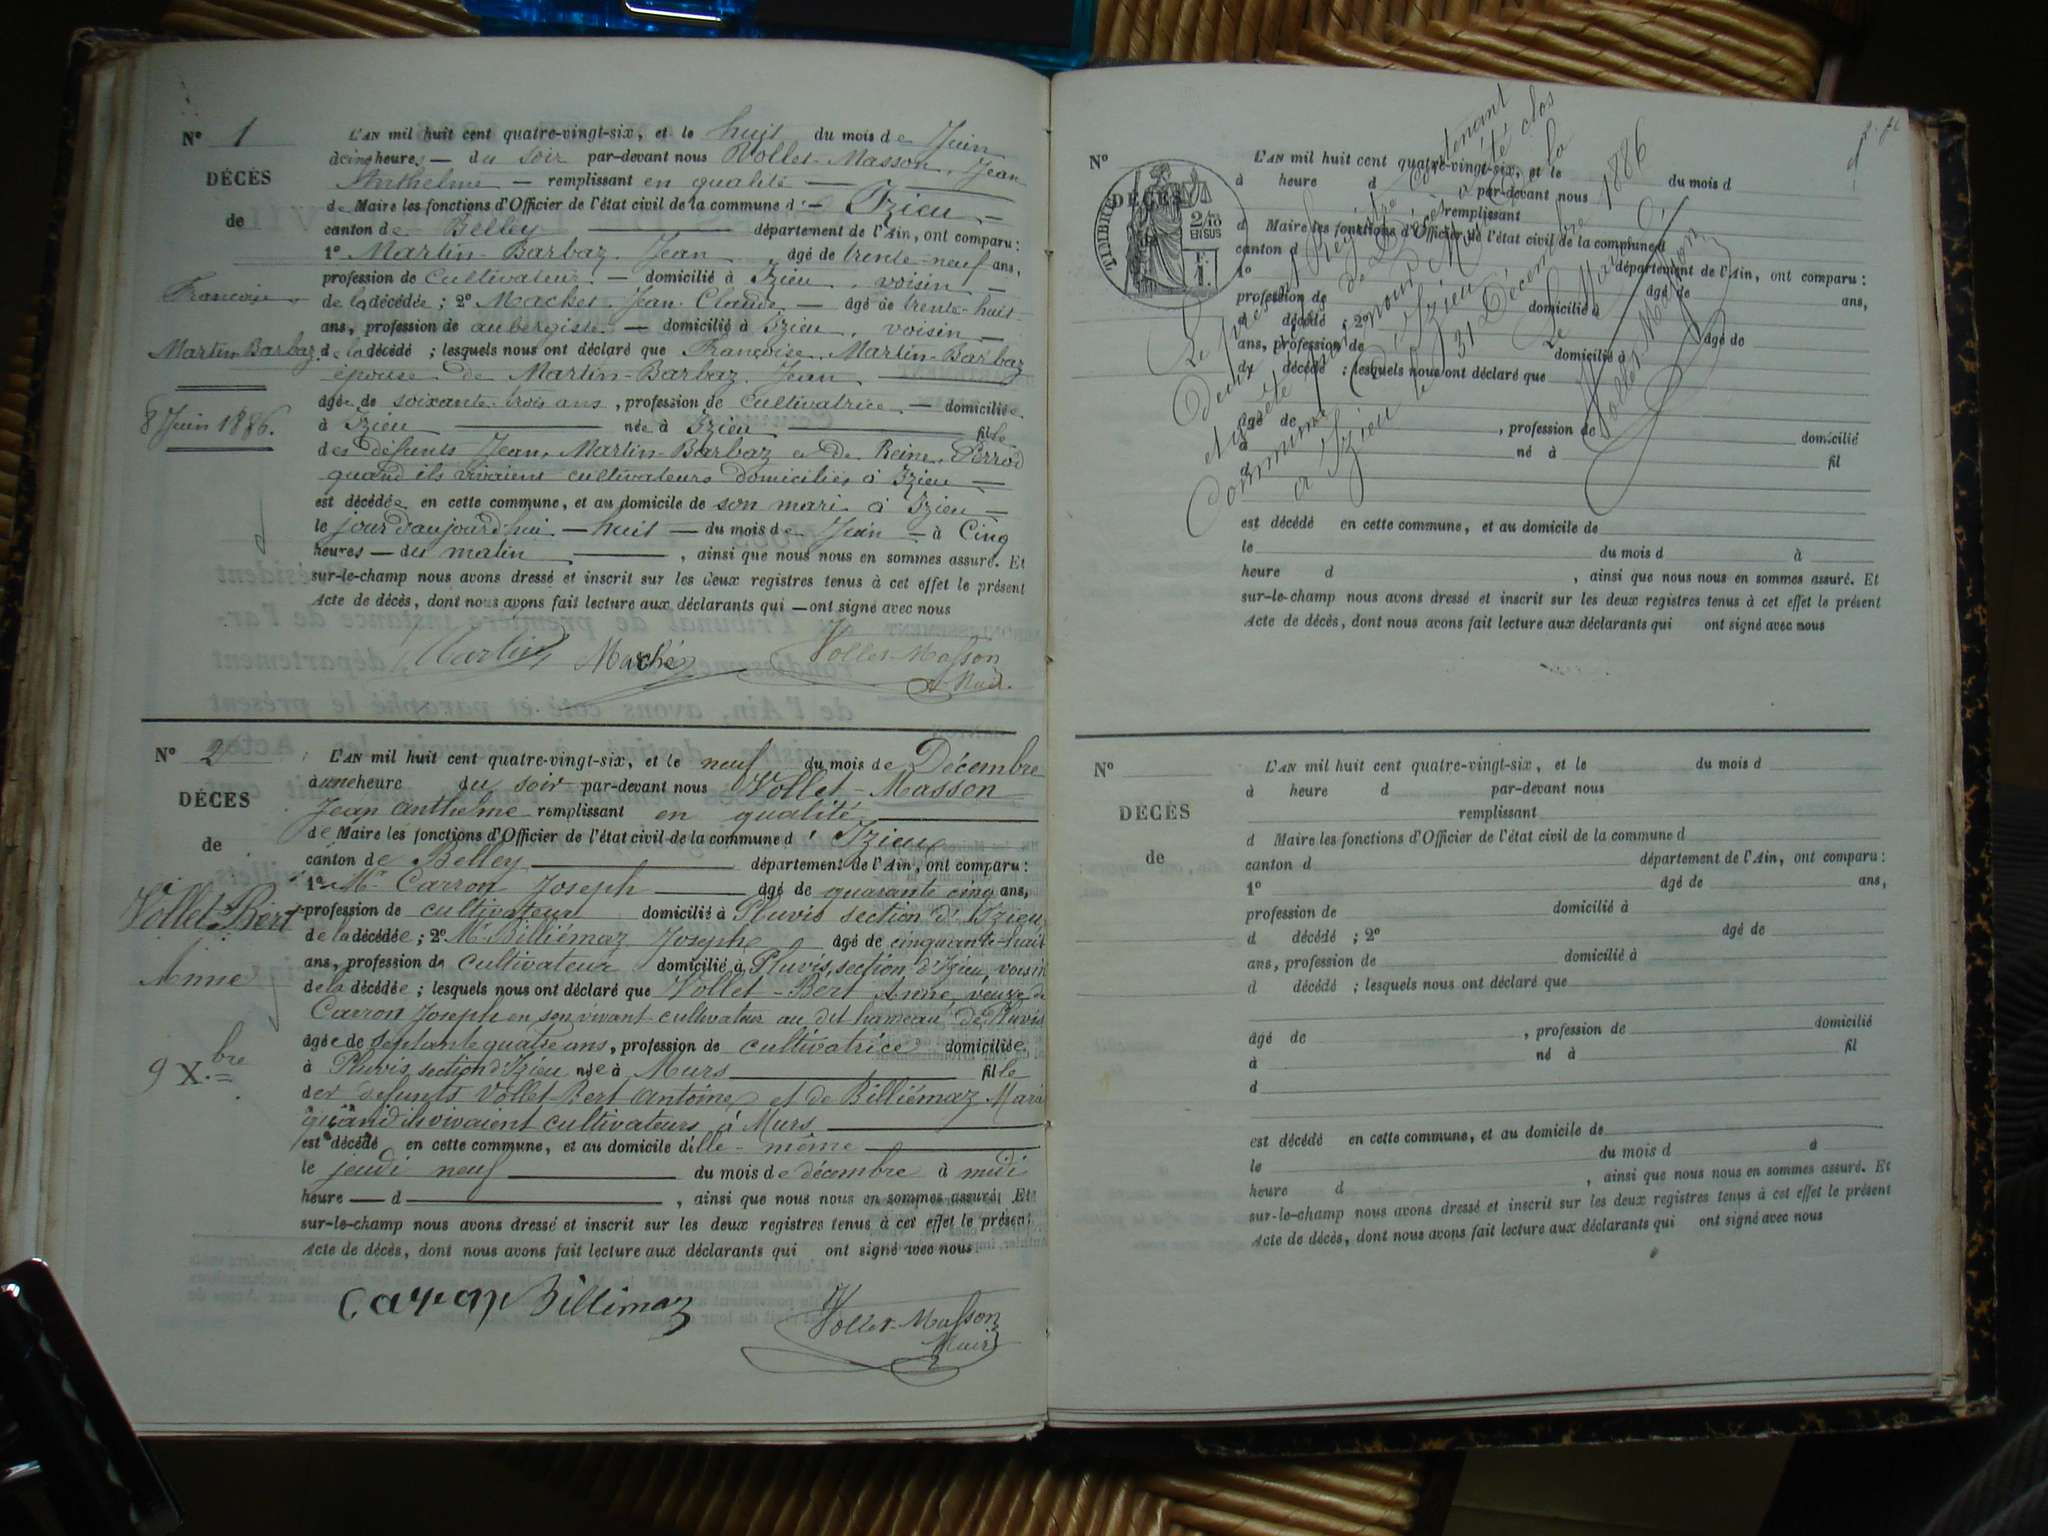 N° 1
DÉCÈS
de
Françoise
Martin-Barbaz
8 Juin 1886.
L'AN mil huit cent quatre-vingt-six, et le huit du mois de Juin
à cinq heures — du soir par-devant nous Vollet-Masson, Jean
Anthelme — remplissant en qualité —
de Maire les fonctions d'Officier de l'état civil de la commune d' — Izieu —
canton de Belley — département de l'Ain, ont comparu :
1° Martin-Barbaz Jean âgé de trente-neuf ans,
profession de Cultivateur — domicilié à Izieu, voisin —
de la décédée ; 2° Machet Jean-Claude — âgé de trente-huit
ans, profession de aubergiste — domicilié à Izieu, voisin —
de la décédé ; lesquels nous ont déclaré que Françoise Martin-Barbaz
épouse de Martin-Barbaz Jean —
âgée de soixante-trois ans, profession de Cultivatrice — domiciliée
à Izieu — née à Izieu — fille
des défunts Jean Martin-Barbaz et de Reine Perrod
quand ils vivaient cultivateurs domiciliés à Izieu —
est décédée en cette commune, et au domicile de son mari à Izieu —
le jour d'aujourd'hui — huit — du mois de Juin — à Cinq
heures — du matin —, ainsi que nous nous en sommes assuré. Et
sur-le-champ nous avons dressé et inscrit sur les deux registres tenus à cet effet le présent
Acte de décès, dont nous avons fait lecture aux déclarants qui — ont signé avec nous
Martin Maché Vollet-Masson
N° 2
DÉCÈS
de
Vollet-Bert
Anne
9 X.bre
L'AN mil huit cent quatre-vingt-six, et le neuf du mois de Décembre
à une heure du soir par-devant nous Vollet-Masson
Jean anthelme remplissant en qualité
de Maire les fonctions d'Officier de l'état civil de la commune d' Izieu
canton de Belley — département de l'Ain, ont comparu :
1° Mr Carron Joseph — âgé de quarante cinq ans,
profession de cultivateur domicilié à Pluvis section d'Izieu
de la décédée ; 2° Mr Billiémaz Joseph âgé de cinquante-huit
ans, profession de cultivateur domicilié à Pluvis, section d'Izieu voisin
de la décédée ; lesquels nous ont déclaré que Vollet-Bert Anne, veuve de
Carron Joseph en son vivant cultivateur au dit hameau de Pluvis
âgée de septante quatre ans, profession de cultivatrice domiciliée
à Pluvis, section d'Izieu née à Murs — fille
des défunts Vollet-Bert Antoine et de Billiémaz
quand ils vivaient cultivateurs à Murs —
est décédé en cette commune, et au domicile d'elle-même —
le jeudi neuf — du mois de décembre à midi
heure — d —, ainsi que nous nous en sommes assuré. Et
sur-le-champ nous avons dressé et inscrit sur les deux registres tenus à cet effet le présent
Acte de décès, dont nous avons fait lecture aux déclarants qui ont signé avec nous
Caron Billimaz Vollet-Masson
Maire
N°
DÉCÈS
TIMBRE
2/10
EN SUS
L'AN mil huit cent quatre-vingt-six, et le du mois d
à heure d par-devant nous
remplissant
d Maire les fonctions d'Officier de l'état civil de la commune d
canton d département de l'Ain, ont comparu :
1° âgé de ans,
profession de domicilié à
d décédé ; 2° âgé de
ans, profession de domicilié à
d décédé ; lesquels nous ont déclaré que
âgé de , profession de domicilié
à né à fil
d
est décédé en cette commune, et au domicile de
le du mois d à
heure d , ainsi que nous nous en sommes assuré. Et
sur-le-champ nous avons dressé et inscrit sur les deux registres tenus à cet effet le présent
Acte de décès, dont nous avons fait lecture aux déclarants qui ont signé avec nous
Le présent Registre contenant
deux de Décès a été clos
et arrêté par nous Maire de la
Commune d'Izieu
à Izieu le 31 Décembre 1886
Le Maire
Vollet Masson
N°
DÉCÈS
de
L'AN mil huit cent quatre-vingt-six, et le du mois d
à heure d par-devant nous
remplissant
d Maire les fonctions d'Officier de l'état civil de la commune d
canton d département de l'Ain, ont comparu :
1° âgé de ans,
profession de domicilié à
d décédé ; 2° âgé de
ans, profession de domicilié à
d décédé ; lesquels nous ont déclaré que
âgé de , profession de domicilié
à né à fil
d
est décédé en cette commune, et au domicile de
le du mois d à
heure d , ainsi que nous nous en sommes assuré. Et
sur-le-champ nous avons dressé et inscrit sur les deux registres tenus à cet effet le présent
Acte de décès, dont nous avons fait lecture aux déclarants qui ont signé avec nous